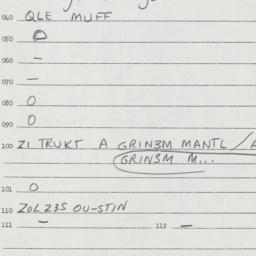 040 QLE MUFF
050 O
060 –
070 –
080 O
090 O
100 ZI TRUKT A GRIN3M MANTL /
GRIN3M M...
101 O
110 ZOLZ3S OU-STIN
111 – 112 –